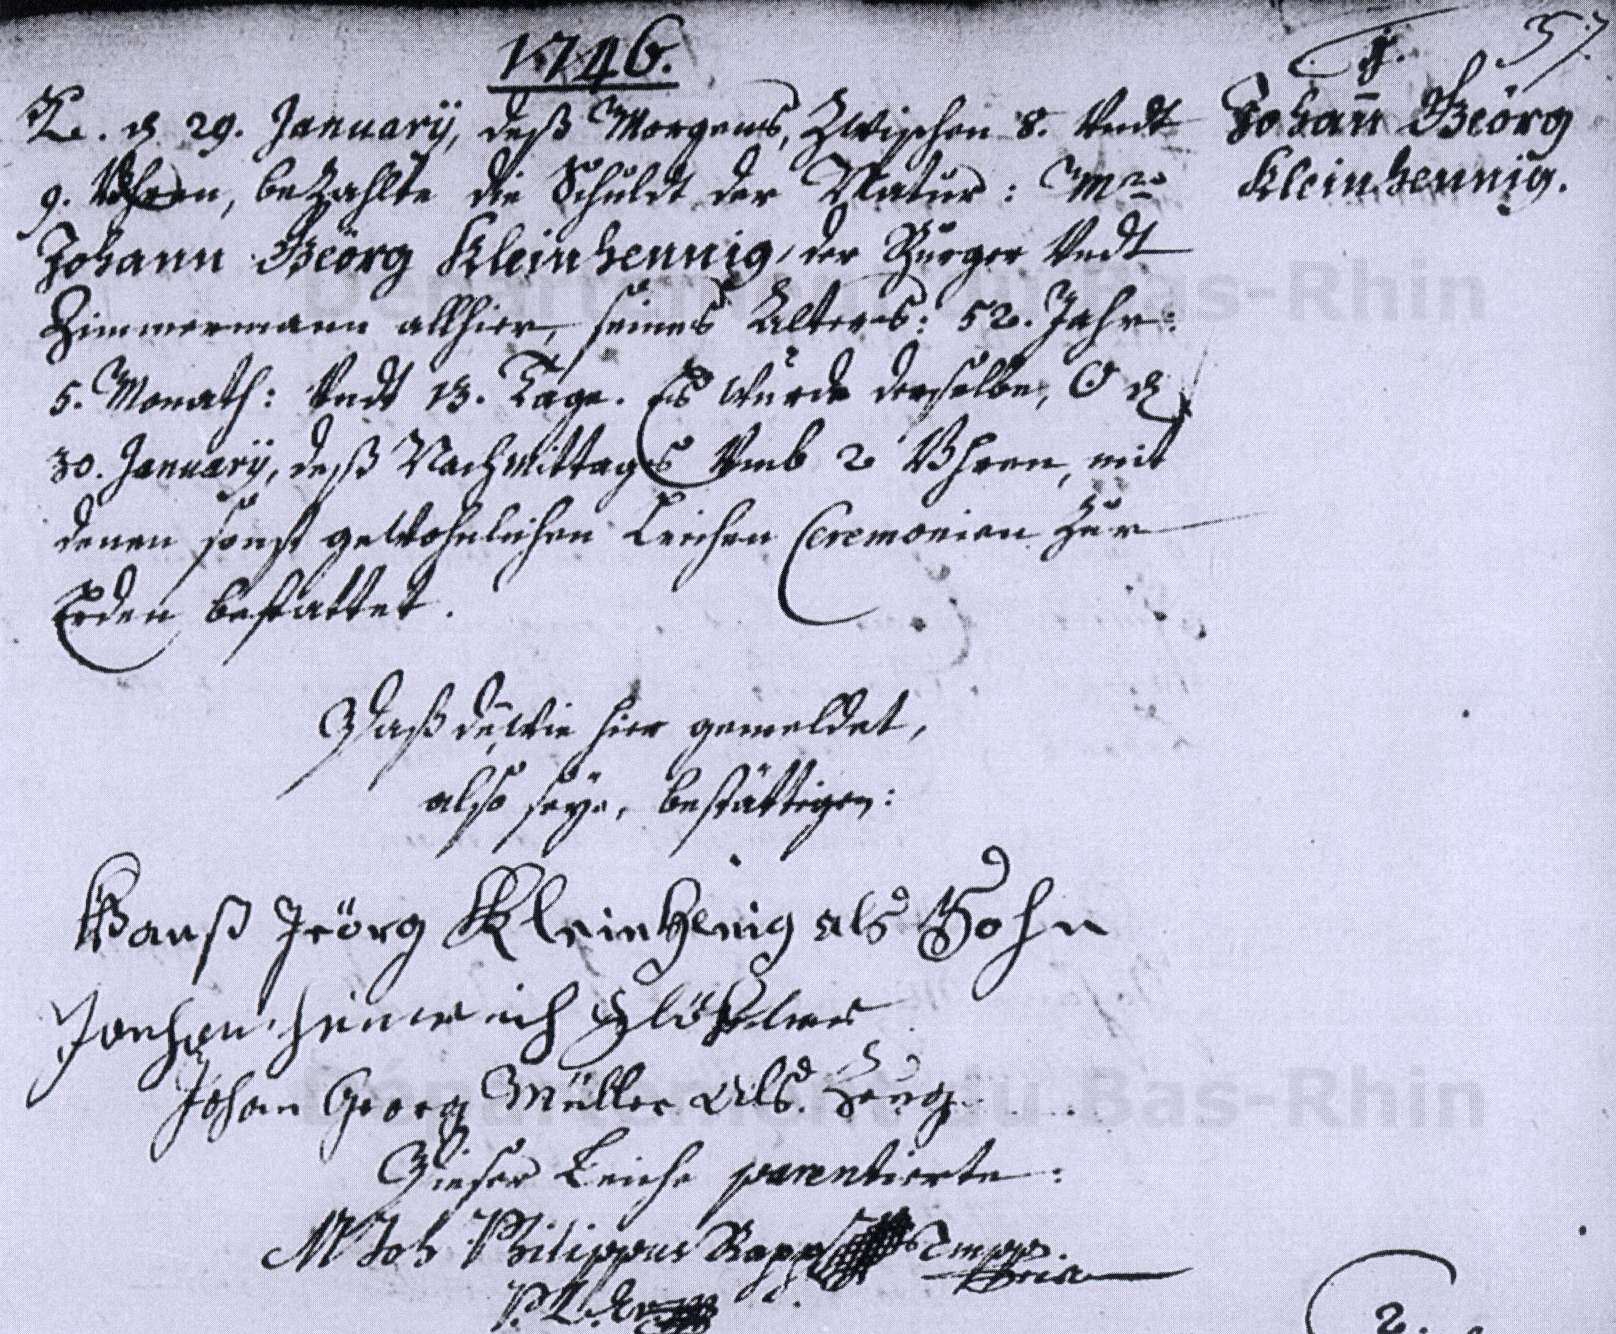 1746.
37.
1.
Johann Geörg
Kleinhennig.
d 29. Januarÿ, deß Morgens, Zwischen 8. Vndt
9. Vhren, bezahlte die Schuldt der Natur: Mr
Johann Geörg Kleinhennig, der Burger Vndt
Zimmermann allhier, seines Alters: 52. Jahr:
5. Monath: Vndt 13. Tage. Es wurde derselbe,
30. Januarÿ, deß Nachmittags Vmb 2 Vhren, mit
denen sonst gewohnlichen Leichen Ceremonien zur
Erden bestattet.
Daß dẽ, wie hier gemeldet,
also seÿe, bestättigen:
Hanß Jeörg Kleinhenig als Sohn
heinrich
Johan Georg Müller als Zeug
Dieser Leiche parentierte:
M Joh Philippus Rapp
2.
Département du Bas-Rhin
Département du Bas-Rhin